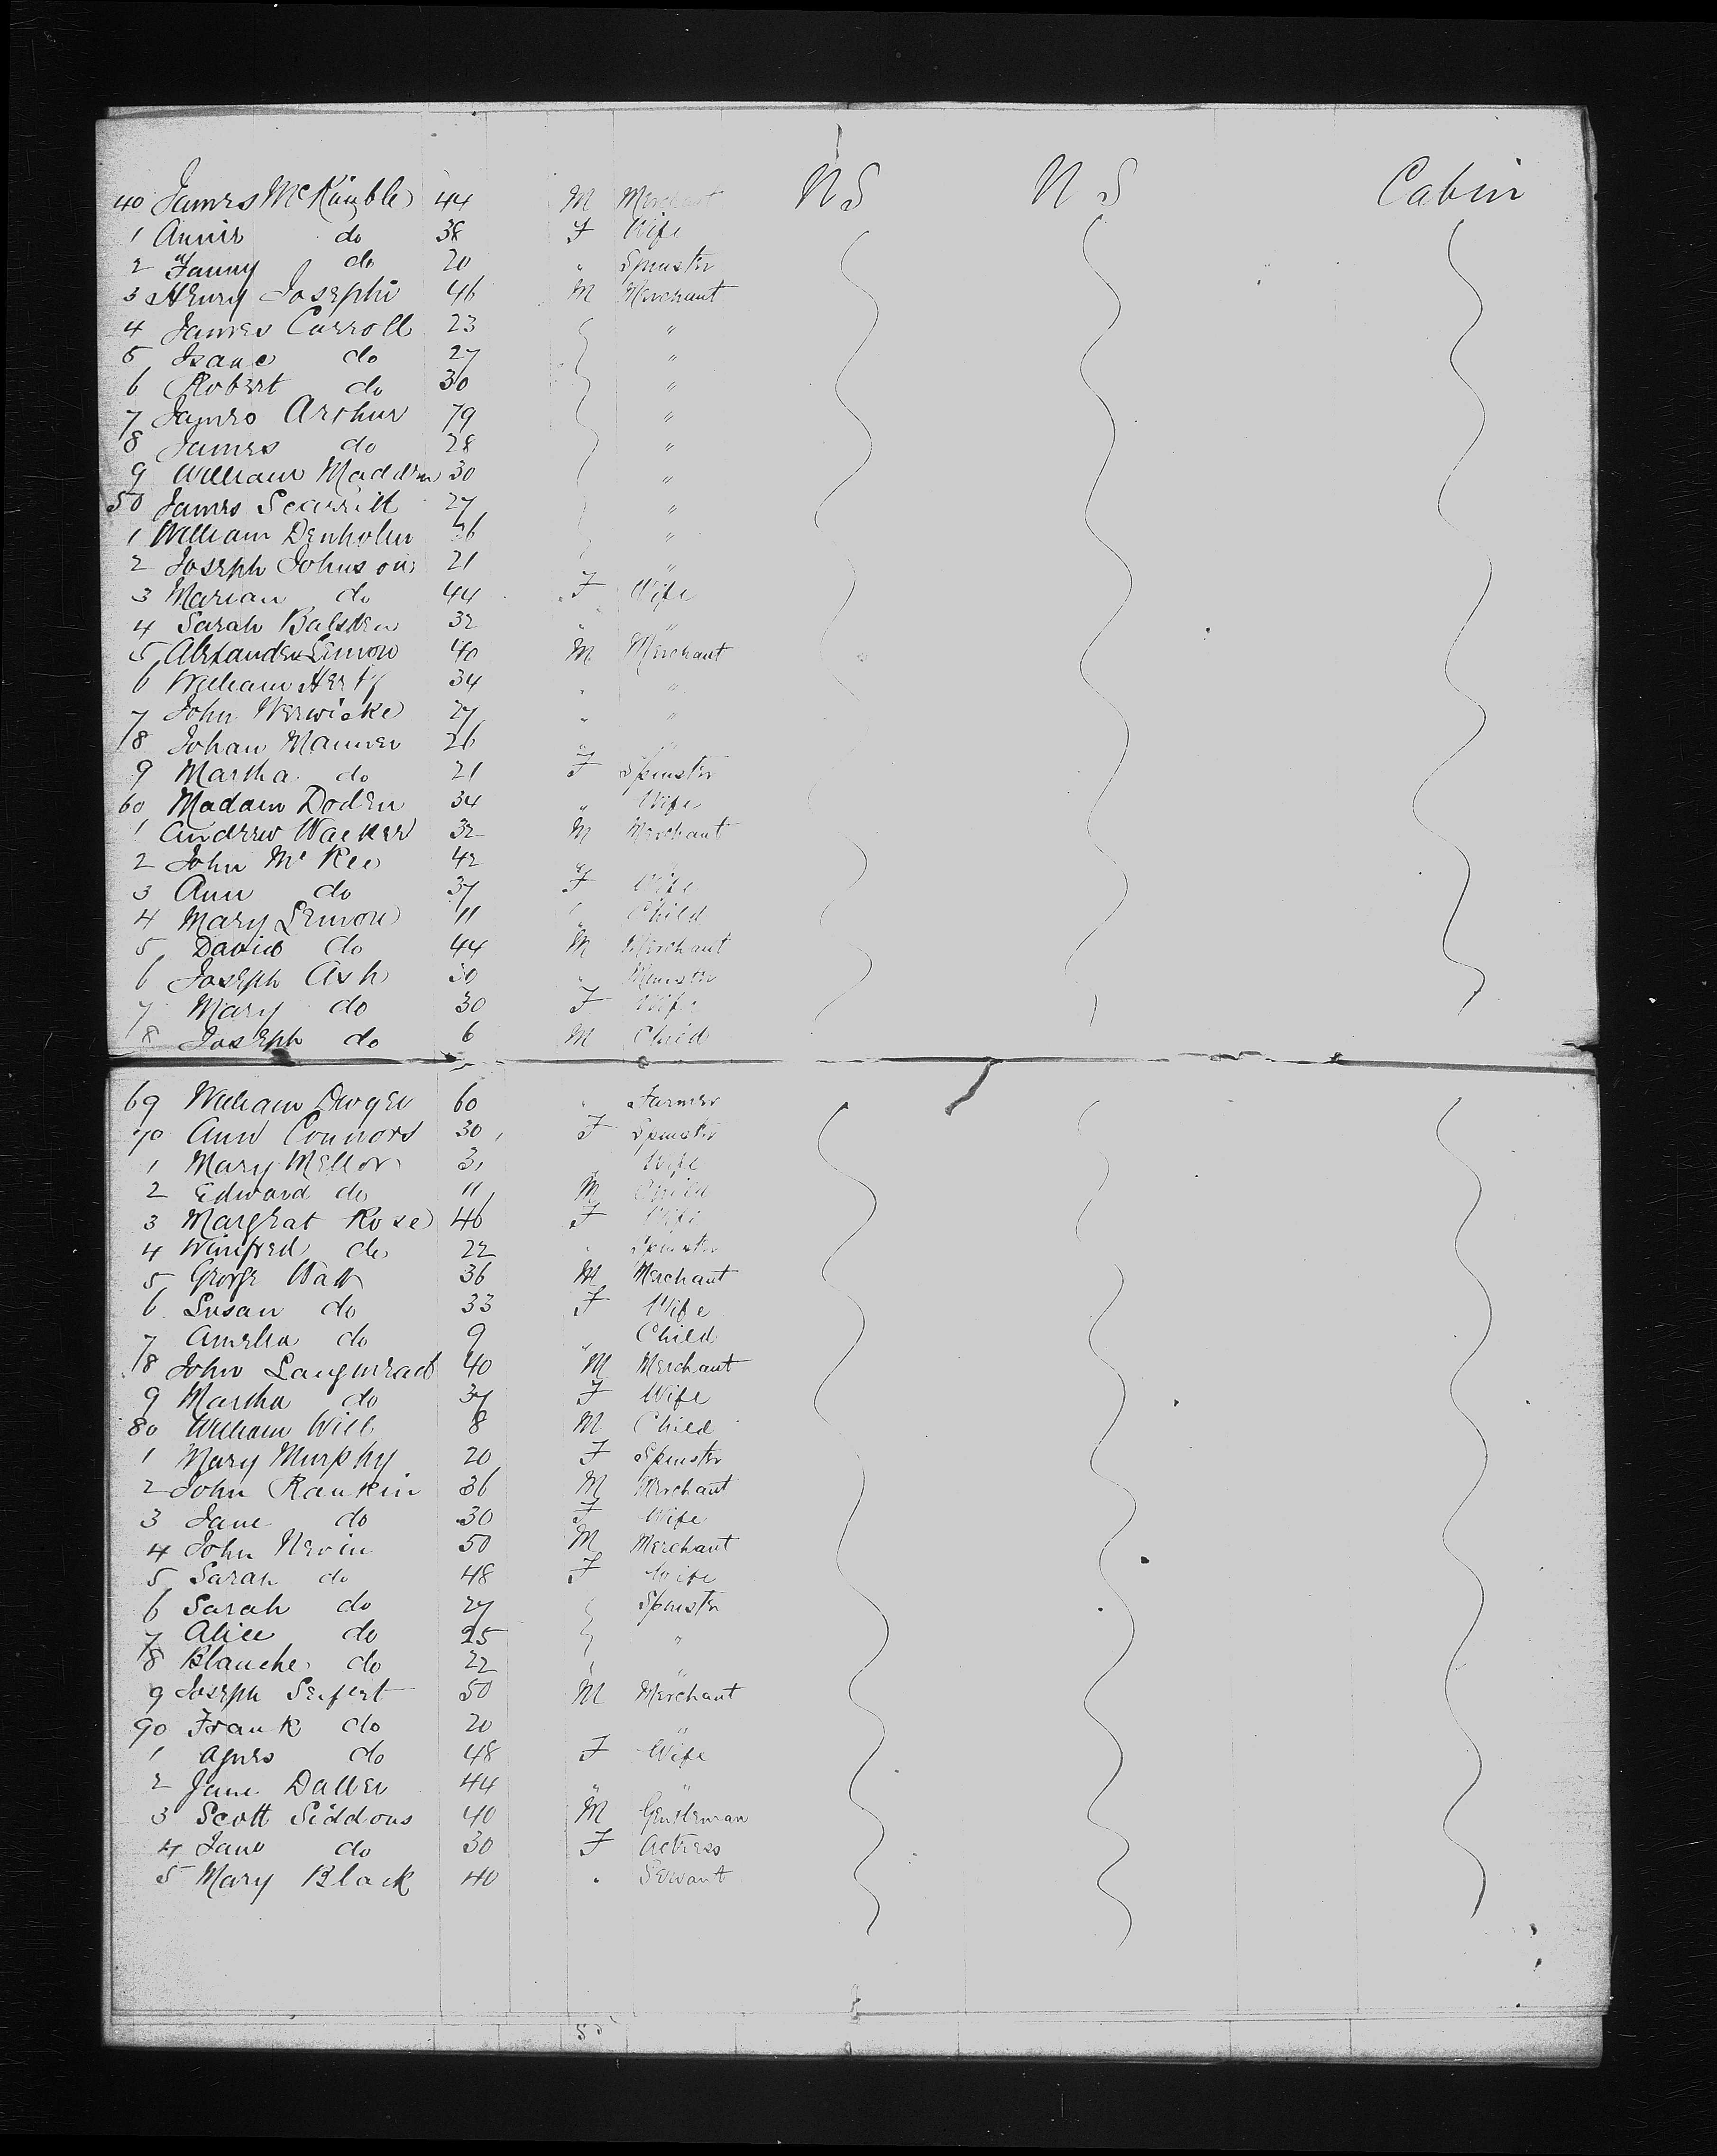 40 James McKimble 44 M Merchant N S N S Cabin
1 Annie do 38 F Wife
2 Fanny do 20 " Spinster
3 Henry Josephi 46 M Merchant
4 James Carroll 23 "
5 Isaac do 27 "
6 Robert do 30 "
7 James Arthur 79 "
8 James do 28 "
9 William Madden 30 "
50 James Scarritt 27 "
1 William Denholm 36 "
2 Joseph Johnson 21 "
3 Marian do 44 F Wife
4 Sarah Balsden 32 " "
5 Alexander Lemon 40 M Merchant
6 William Herty 34 " "
7 John Werwicke 27 " "
8 Johan Manner 26 " "
9 Martha do 21 F Spinster
60 Madam Doden 34 " Wife
1 Andrew Walker 32 M Merchant
2 John McKee 42 " "
3 Ann do 37 F Wife
4 Mary Lemon 11 " Child
5 David do 44 M Merchant
6 Joseph Ash 30 " Minister
7 Mary do 30 F Wife
8 Joseph do 6 M Child
69 William Dwyer 60 " Farmer
70 Ann Connors 30 F Spinster
1 Mary Mellor 31 " Wife
2 Edward do 11 M Child
3 Margrat Rose 46 F Wife
4 Winifred do 22 " Spinster
5 George Watt 36 M Merchant
6 Susan do 33 F Wife
7 Amelia do 9 " Child
8 John Langmead 40 M Merchant
9 Martha do 37 F Wife
80 William Will 8 M Child
1 Mary Murphy 20 F Spinster
2 John Rankin 36 M Merchant
3 Jane do 30 F Wife
4 John Nevin 50 M Merchant
5 Sarah do 48 F Wife
6 Sarah do 27 Spinster
7 Alice do 25 "
8 Blanche do 22 "
9 Joseph Seifert 50 M Merchant
90 Frank do 20 "
1 Agnes do 48 F Wife
2 Jane Dallen 44 " "
3 Scott Siddons 40 M Gentleman
4 Jane do 30 F Actress
5 Mary Black 40 " Servant